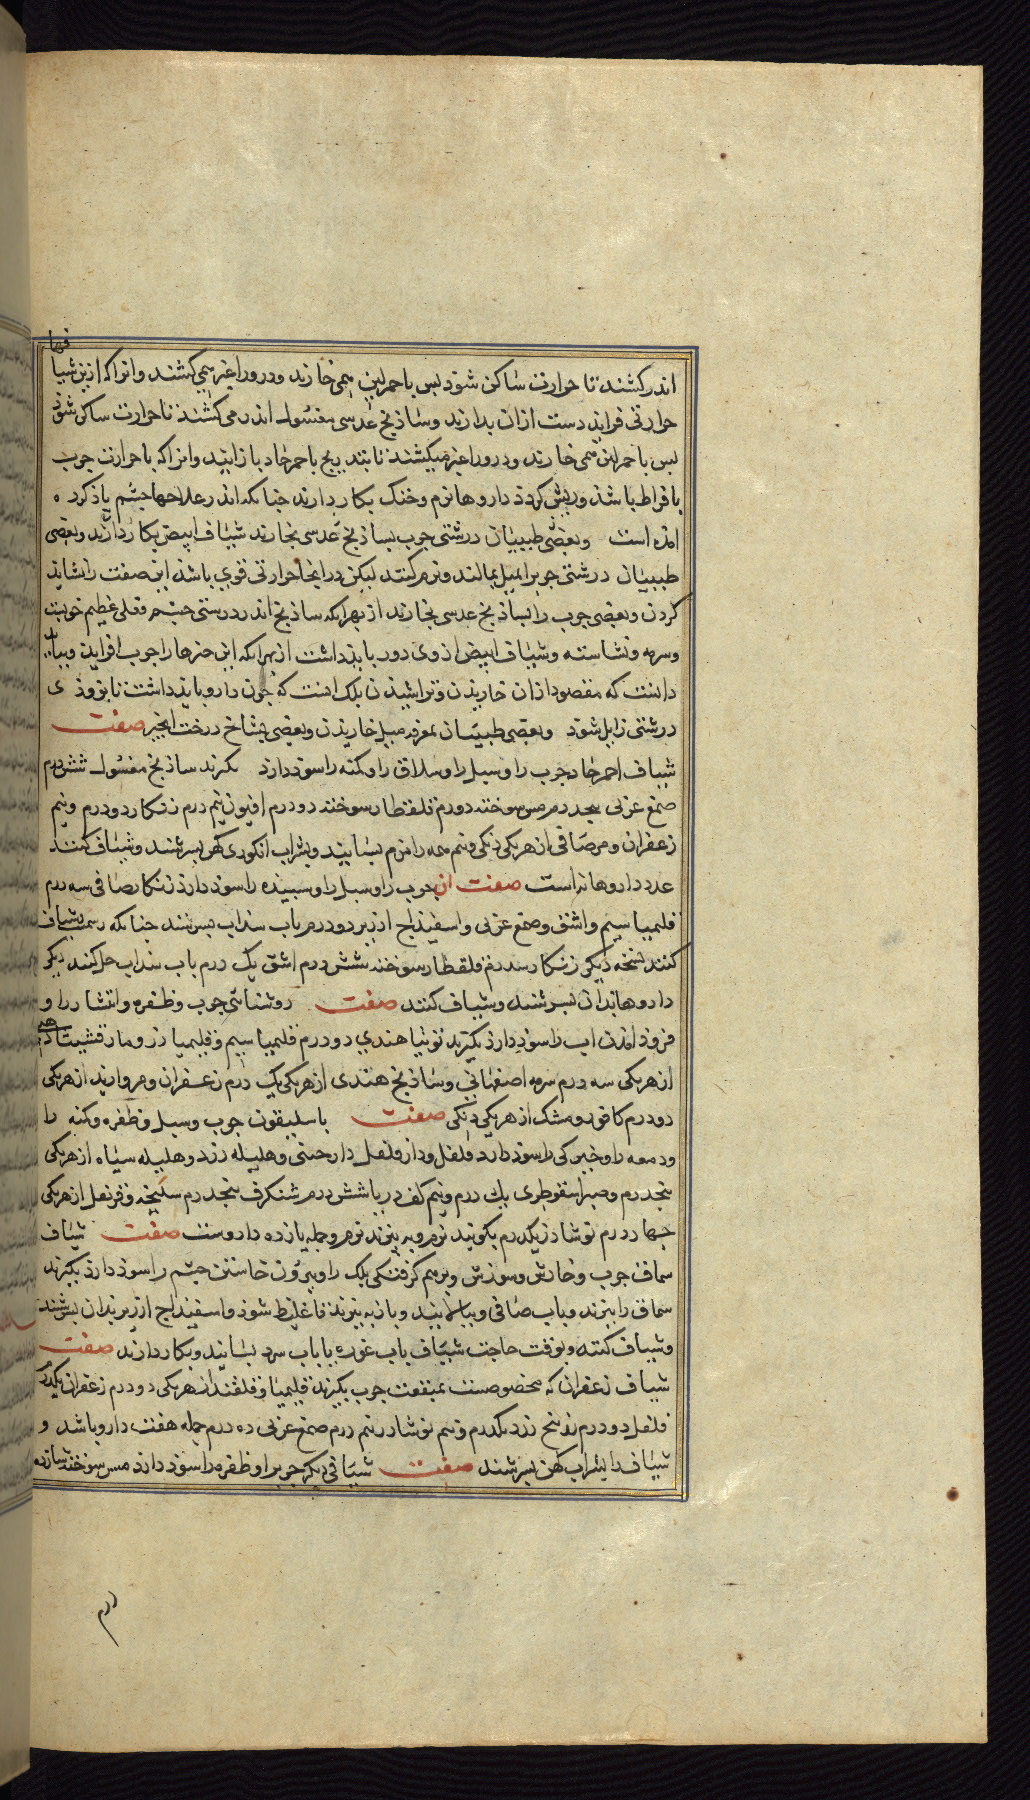 فها
اندر کشند تا حرارت ساکن شوذ بس باحمر لین همی خارند و درور اغبر همی کشند وانرا که ازین شیا
حرارتی فزاید دست ازان بدارند وساذنج عدسی مغسول اندر می کشند تا حرارت ساکن شوذ
بس باحمر لین همی خارند ودرور اغبر میکشند تا بتدریج باحمر حاد باز ایند وانرا که با حرارت جرب
بافراط باشد وریش کرده داروها نرم وخنک بکار دارند جنانکه اندر علاجها جشم یاذ کرده
امذه است وبعضی طبیبان درشتی جرب بساذنج عدسی بخارند شیاف ابیض بکار دارند وبعضی
طبیبان درشتی جرب را بمیل بمالند ونرم کنند لیکن در انجا حرارتی قوی باشد این صفت را نشاید
کردن وبعضی جرب را بساذنج عدسی بخارند از بهر انکه ساذنج اندر درستی جشم فعلی عظیم خوبست
وسرمه ونشاسته وشیاف ابیض ازوی دور باید داشت از بهر انکه این جیزها را جرب افزاید وبباید
دانست که مقصود ازان خاریدن وتراشیدن بلک انست که جون دارو باید داشت تا بزوذی
درشتی زایل شوذ وبعضی طبیبان بمغرفه میل خاریدن وبعضی بشاخ درخت انجیر صفت
شیاف احمر حاد جرب را وسبل را وسلاق را وکمنه را سوذ دارد بکیرند ساذنج مغسول شش درم
صمغ عربی پنجدرم مس سوخته دو درم قلقطار سوخته دو درم افیون نیم درم زنکار دو درم ونیم
زعفران ومر صافی از هر یکی دنکی ونیم همه را نرم بسایند وبشراب انکوری کهن بسرشند وشیاف کنند
عدد داروها نه است صفت ان جرب را وسبل را وسبیذه را سوذ دارد زنکار صافی سه درم
قلیمیا سیم واشق وصمغ عربی واسفیذاج ارزیز دو درم باب سذاب بسرشند جنانکه رسمست شیاف
کنند نسخه دیکر زنکار سه درم قلقطار سوخته شش درم اشق یک درم باب سذاب حل کنند دیکر
داروها بذان بسرشند وشیاف کنند صفت روشنائی جرب وظفره وانتشار را و
فروذ امذن اب را سوذ دارد بکیرند توتیا هندی دو درم قلیمیا سیم وقلیمیا زر ومارقشیشا
از هر یکی سه درم سرمه اصفهانی وساذنج هندی از هر یکی یک درم زعفران ومروارید از هر یکی
دو درم کافور ومشک از هر یکی دنکی صفت باسلیقون جرب وسبل وظفره وکمنه را
ودمعه را وخیرکی را سوذ دارد فلفل ودارفلفل دارچینی وهلیله زرد وهلیله سیاه از هر یکی
پنجدرم وصبر اسقوطری یک درم ونیم کف دریا شش درم شنکرف پنجدرم سلیخه وقرنفل از هر یکی
جهار درم نوشاذر یکدرم بکوبند نرم وبه بیزند نرم وجمله یازده داروست صفت شیاف
سماق جرب وخارش وسوزش وبرهم کرفتکی بلک را وبیرون خاستن جشم را سوذ دارد بکیرند
سماق را بپزند وباب صافی وبپالایند وباز به پزند تا غلیظ شوذ واسفیذاج ارزیز بذان بسرشند
وشیاف کنند وبوقت حاجت شیاف باب غوره یا باب سرد بسایند وبکار دارند صفت
شیاف زعفران که مخصوصست بمنفعت جرب بکیرند قلیمیا وقلقند از هر یکی دو درم زعفران یکدرم
فلفل دو درم زرنیخ زرد یکدرم ونیم نوشاذر نیم درم صمغ عربی ده درم جمله هفت دارو باشد و
شیاف را بشراب کهن بسرشند صفت شیافی دیکر جرب را وظفره را سوذ دارد مس سوخته شانزده
درم